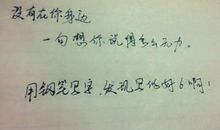 没有在你身边
一句想你说得多么无力。
用钢笔写字,发现写的好6啊!